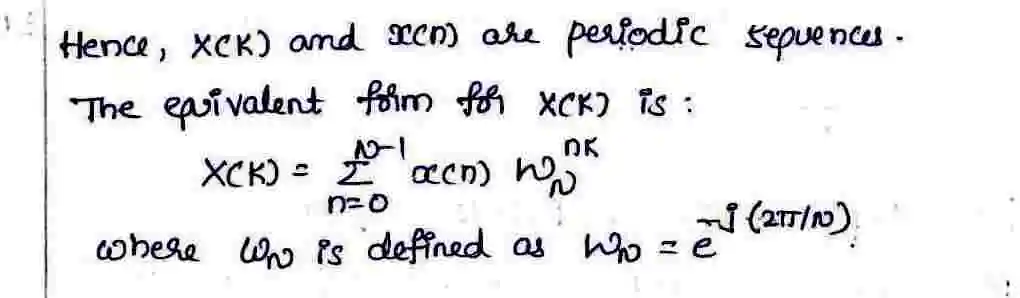 Hence, X(K) and x(n) are periodic sequences.
The equivalent form for X(K) is :
X(K) = Σ_{n=0}^{N-1} x(n) W_N^{nK}
where W_N is defined as W_N = e^{-j(2π/N)}.